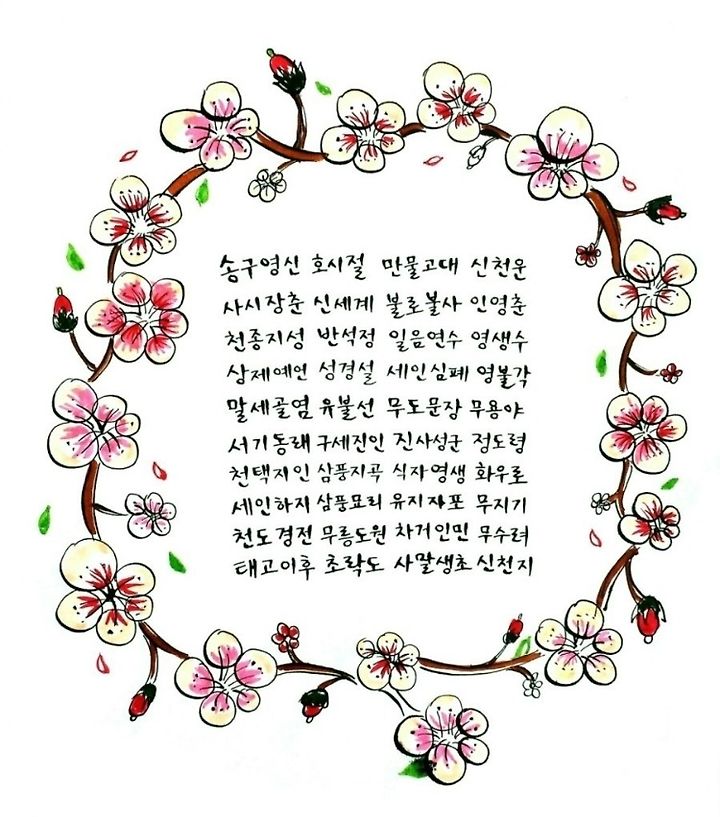 송구영신 호시절 만물고대 신천운
사시장춘 신세계 불로불사 인영춘
천종지성 반석정 일음연수 영생수
상제예언 성경설 세인심폐 영불각
말세골염 유불선 무도문장 무용야
서기동래 구세진인 진사성군 정도령
천택지인 삼풍지곡 식자영생 화우로
세인하지 삼풍묘리 유지자포 무지기
천도경전 무릉도원 차거인민 무수려
태고이후 초락도 사말생초 신천지